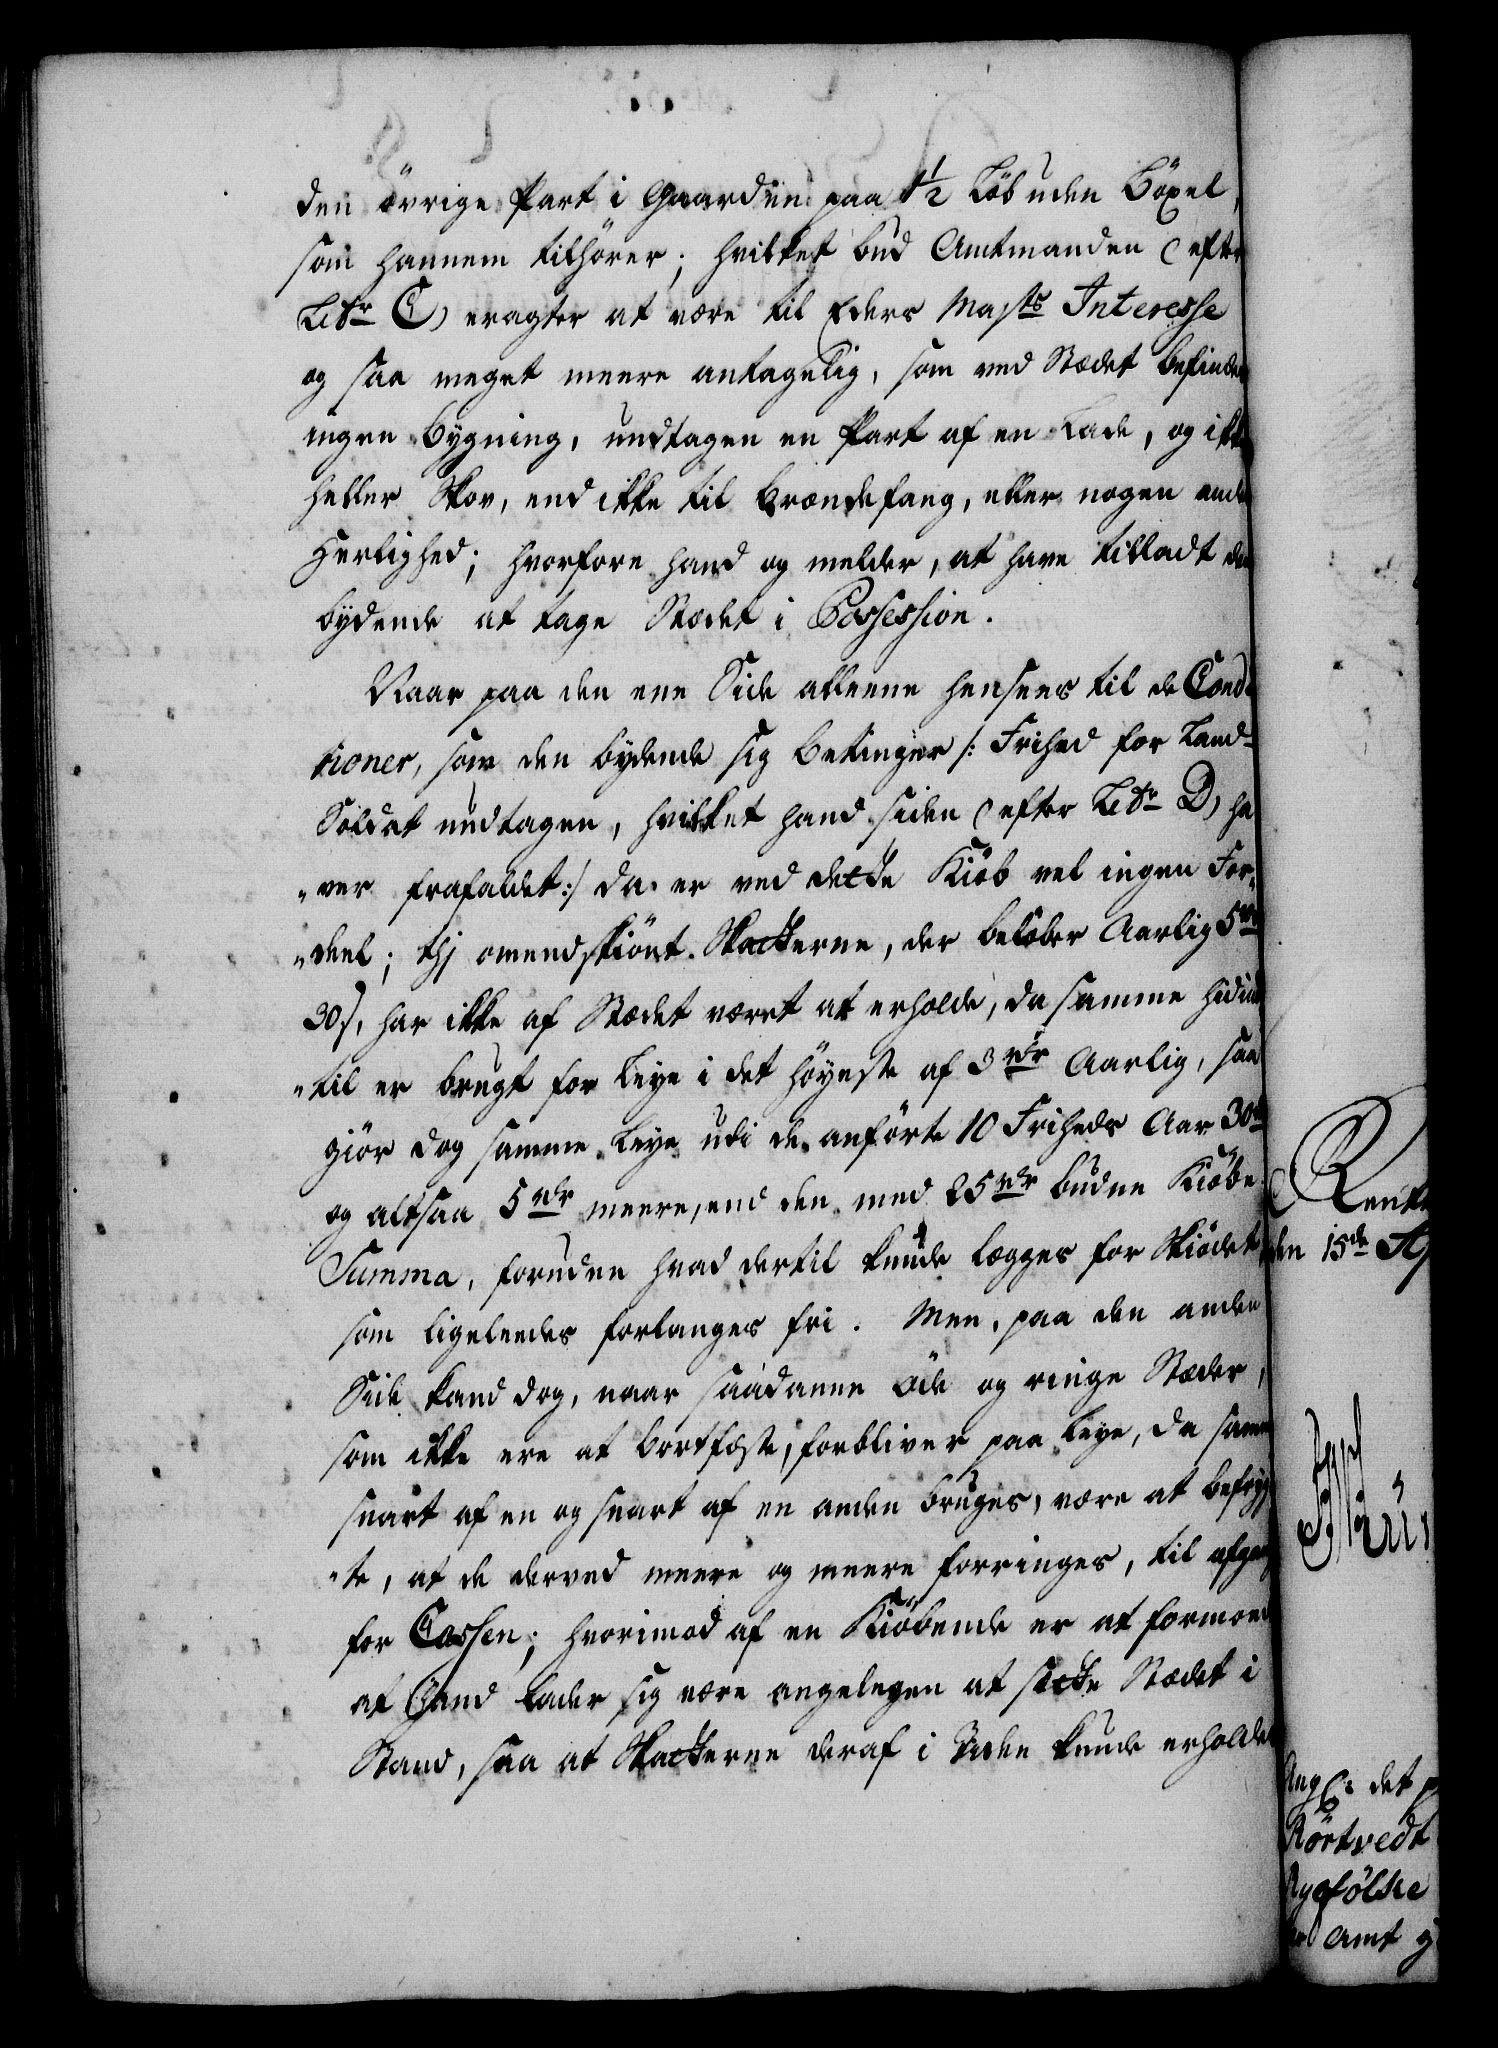 den övrige Part i Gaarden paa 1½ Löb uden Böxel,
som hannem tilhörer; hvilket bud Amtmanden (efter
Litr C) eragter at være til Eders Majts Interesse
og saa meget meere antagelig, som ved Stædet befindes
ingen Bygning, undtagen en Part af en Lade, og ikke
heller Skov, end ikke til Brændefang, eller nogen anden
Herlighed; hvorfore hand og melder, at have tilladt den
bydende at tage Stædet i Possession.
Naar paa den eene Side alleene hensees til de Condi
tioner, som den bydende sig betinger /: Frihed for Land-
Soldat undtagen, hvilket hand siden (efter Litr D) ha
"ver frafaldet :/ da er ved dette Kiöb vel ingen For-
"deel; thj omendskiönt Skatterne, der belöber Aarlig 5 rdr
30 s, har ikke af Stædet været at erholde, da samme hidind
"til er brugt for Leye i det höyeste af 3 rdr Aarlig, saa
giör dog samme Leye udi de anförte 10 Friheds Aar 30 rdr
og altsaa 5 rdr meere, end den med 25 rdr budne Kiöbe
Summa, foruden hvad dertil kunde lægges for Skiödet,
som ligeleedes forlanges fri. Men, paa den anden
Side kand dog, naar saadanne Öde og ringe Stæder,
som ikke ere at bortfæste, forbliver paa Leye, da samme
snart af en og snart af en anden bruges, være at befryg
"te, at de derved meere og meere forringes, til afgang
for Cassen; hvorimod af en Kiöbende er at formode
at Hand lader sig være angelegen at sætte Stædet i
Stand, saa at Skatterne deraf i Tiden kunde erholdes
Rente
den 15de Ap
Ang: det p
Rörtvedt
Ryefölke
Amt